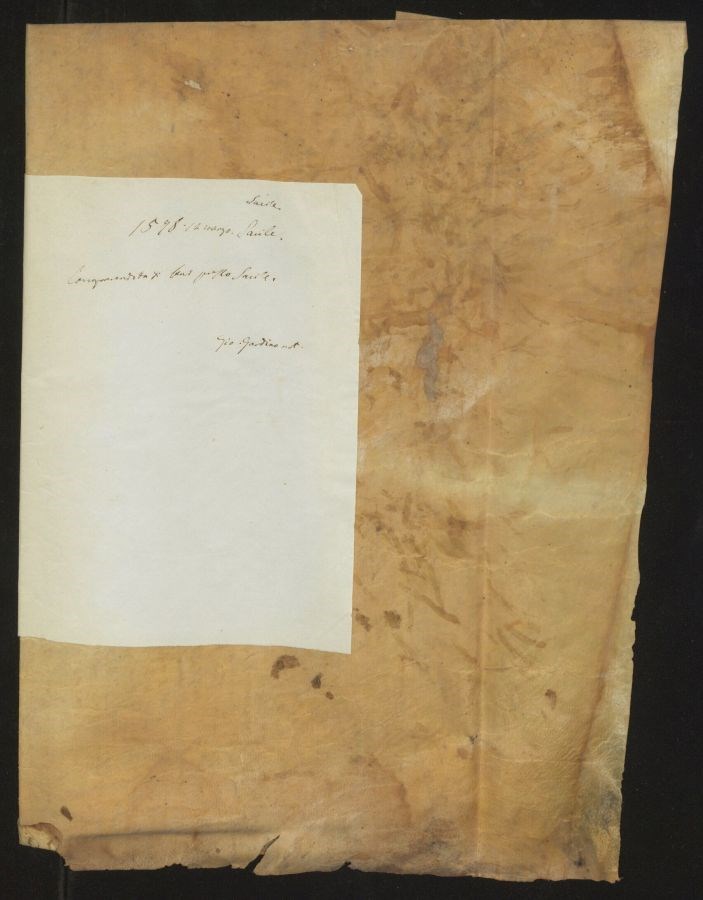 Sacile.
1598. 12 marzo. Sacile.
Compravendita di beni presso Sacile.
Gio: Gardino not.